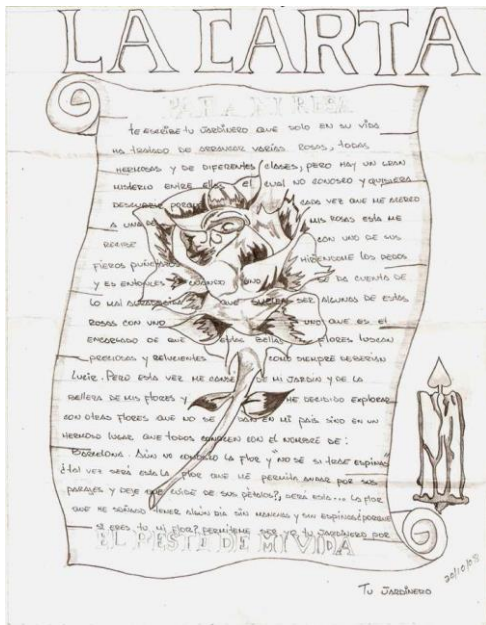 LA CARTA
PARA MI ROSA
te escribe tu jardinero que solo en su vida
ha tratado de arrancar varias rosas, todas
hermosas y de diferentes clases, pero hay un gran
misterio entre ellas el cual no conosco y quisiera
descubrir porque cada vez que me acerco
a una de mis rosas esta me
recibe con uno de sus
fieros punchasos hiriendome los dedos
y es entonces cuando uno se da cuenta de
lo mal que suelen ser algunas de estas
rosas con uno uno que es el
encargado de que estas bellas flores luscan
preciosas y relucientes como siempre deberian
lucir. Pero esta vez me canse de mi jardin y de la
belleza de mis flores y he decidido explorar
con otras flores que no se dan en mi pais sino en un
hermoso lugar que todos conocen con el nombre de:
Barcelona. Aún no conozco la flor y "no se si trae espinas"
¿tal vez será esta la flor que me permita andar por sus
parajes y deje que cuide de sus pétalos?, será esta... la flor
que he soñado tener algún dia sin manchas y sin espinas ¿porque
si eres tu mi flor? permiteme ser yo tu jardinero por
EL RESTO DE MI VIDA
20/10/08
Tu jardinero